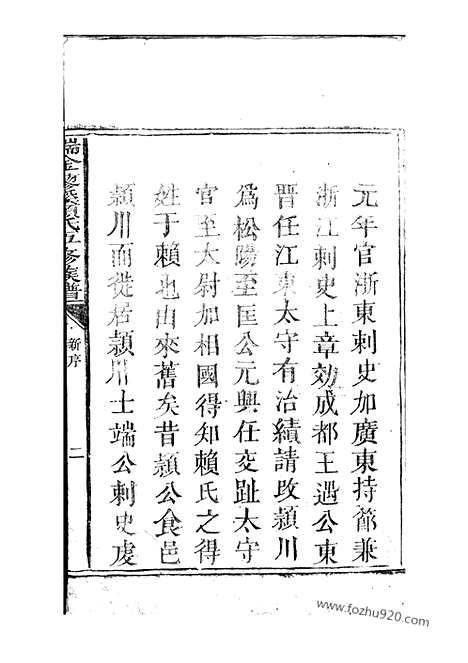 元年官浙東刺史加廣東持節兼
浙江刺史上章劾成都王遇公東
晋任江東太守有治績請改潁川
爲松陽至匡公元興任交趾太守
官至大尉加相國得知賴氏之得
姓于賴也由來舊矣昔潁公食邑
潁川而徙居潁川士端公刺史虔
瑞金賴氏五修族譜
新序
二
www.fozhu920.com